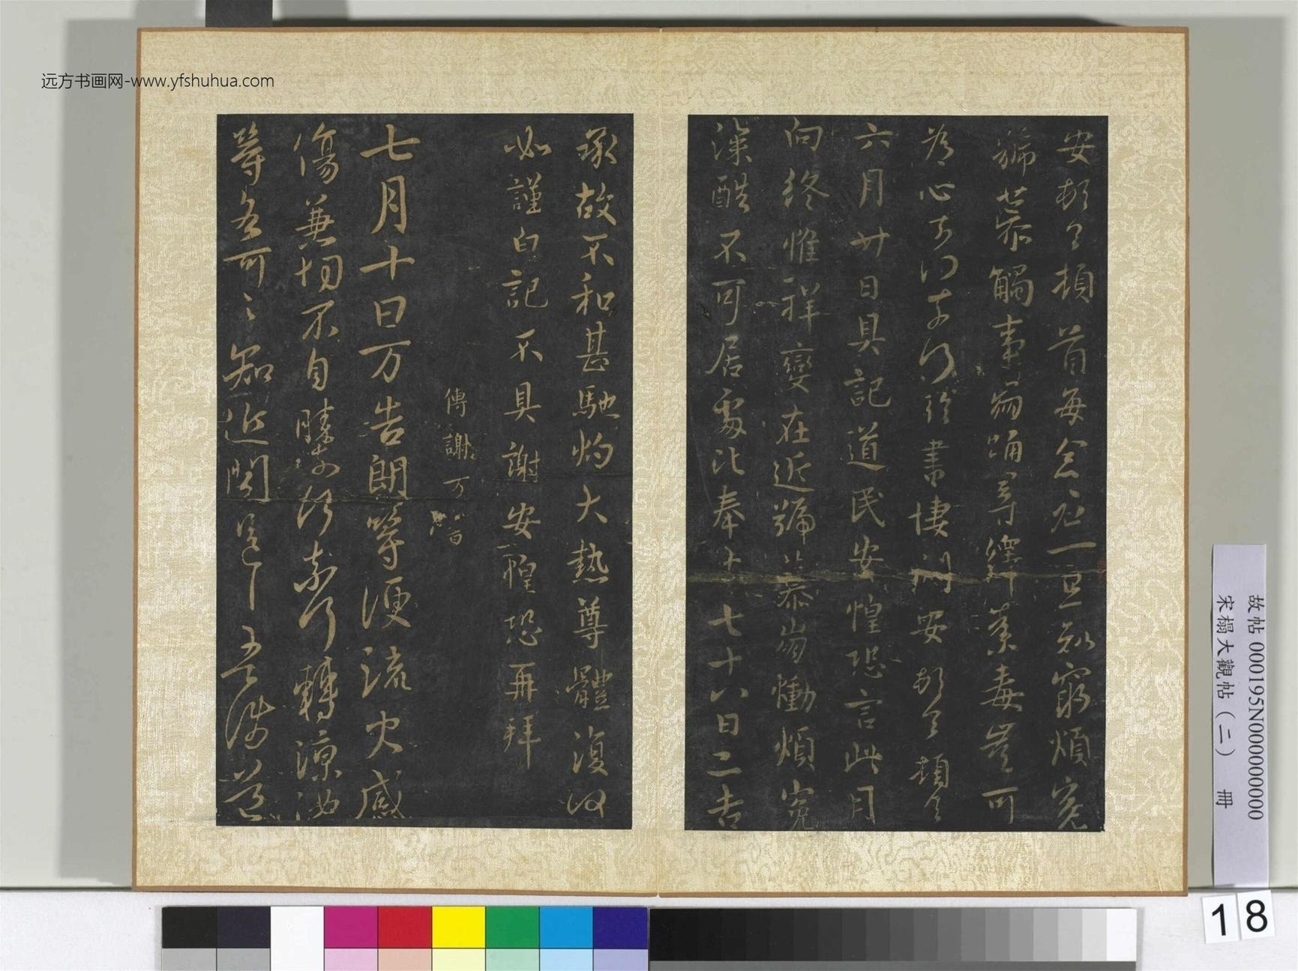 远方书画网-www.yfshuhua.com
安頓首頓首每念君一旦知窮煩冤
號慕觸事崩踴尋繹荼毒豈可
為心奈何奈何臨書悽悶安頓首頓首
六月廿日具記道民安惶恐言此月
向終惟祥變在近號慕崩慟煩冤
深酷不可居處比奉十七十八日二告
承故不和甚馳灼大熱尊體復何
如謹白記不具謝安惶恐再拜
傳謝万書
七月十日万告朗等便流火感
傷兼切不自勝奈何奈何轉涼汝
等各可可知近聞邑下
故帖 000195N000000000
宋榻大觀帖(二) 冊
18